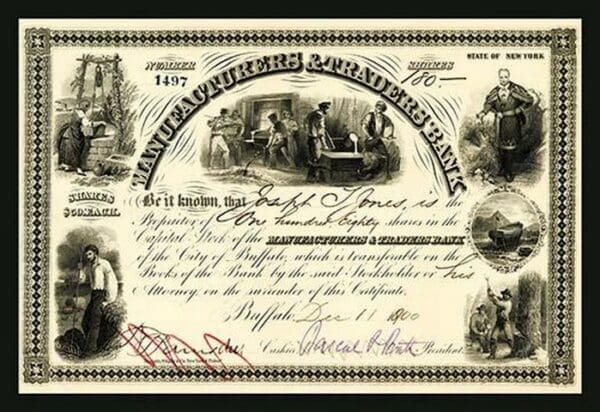 NUMBER
1497
MANUFACTURERS & TRADERS BANK
SHARES
180.—
STATE OF NEW YORK
SHARES
$50. EACH.
Be it known, that Jones, is the
Proprietor of One hundred Eighty shares in the
Capital Stock of the MANUFACTURERS & TRADERS BANK
of the City of Buffalo, which is transferable on the
Books of the Bank by the said Stockholder or his
Attorney, on the surrender of this Certificate.
Buffalo, Dec 11 1900
Cashier. Pascal President.